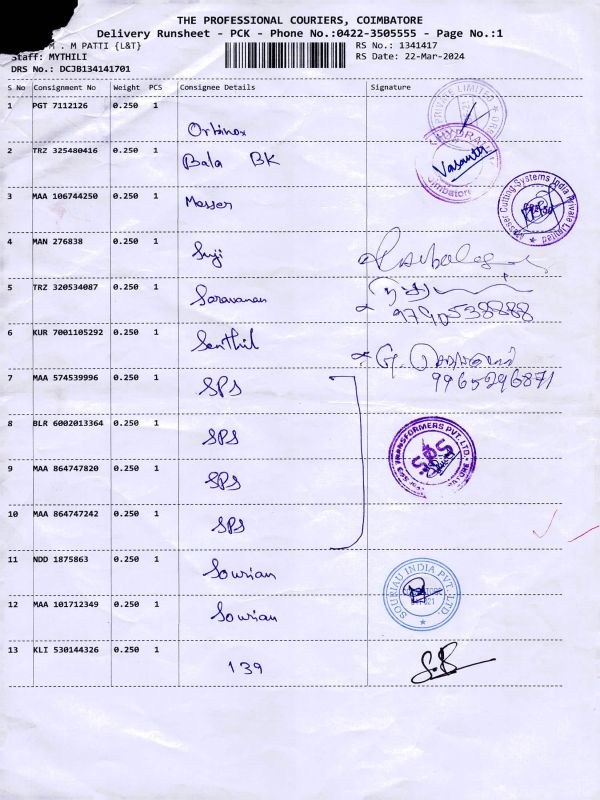 THE PROFESSIONAL COURIERS, COIMBATORE
Delivery Runsheet - PCK - Phone No.:0422-3505555 - Page No.:1
M . M PATTI {L&T} RS No.: 1341417
Staff: MYTHILI RS Date: 22-Mar-2024
DRS No.: DCJB134141701
S No Consignment No Weight PCS Consignee Details Signature
1 PGT 7112126 0.250 1 Orbinox
PRIVATE LIMITED
2 TRZ 325480416 0.250 1 Bala BK
HYDRA
Vasanth
Coimbatore
3 MAA 106744250 0.250 1 Messer
Messer Cutting Systems India Private Limited
4 MAN 276838 0.250 1 Suji
5 TRZ 320534087 0.250 1 Saravanan
9790538888
6 KUR 7001105292 0.250 1 Senthil
9965296871
7 MAA 574539996 0.250 1 SPS
8 BLR 6002013364 0.250 1 SPS
TRANSFORMERS PVT. LTD.
SPS
9 MAA 864747820 0.250 1 SPS
10 MAA 864747242 0.250 1 SPS
11 NDD 1875863 0.250 1 Sourian
SOURIAU INDIA PVT. LTD
12 MAA 101712349 0.250 1 Sourian
13 KLI 530144326 0.250 1 139